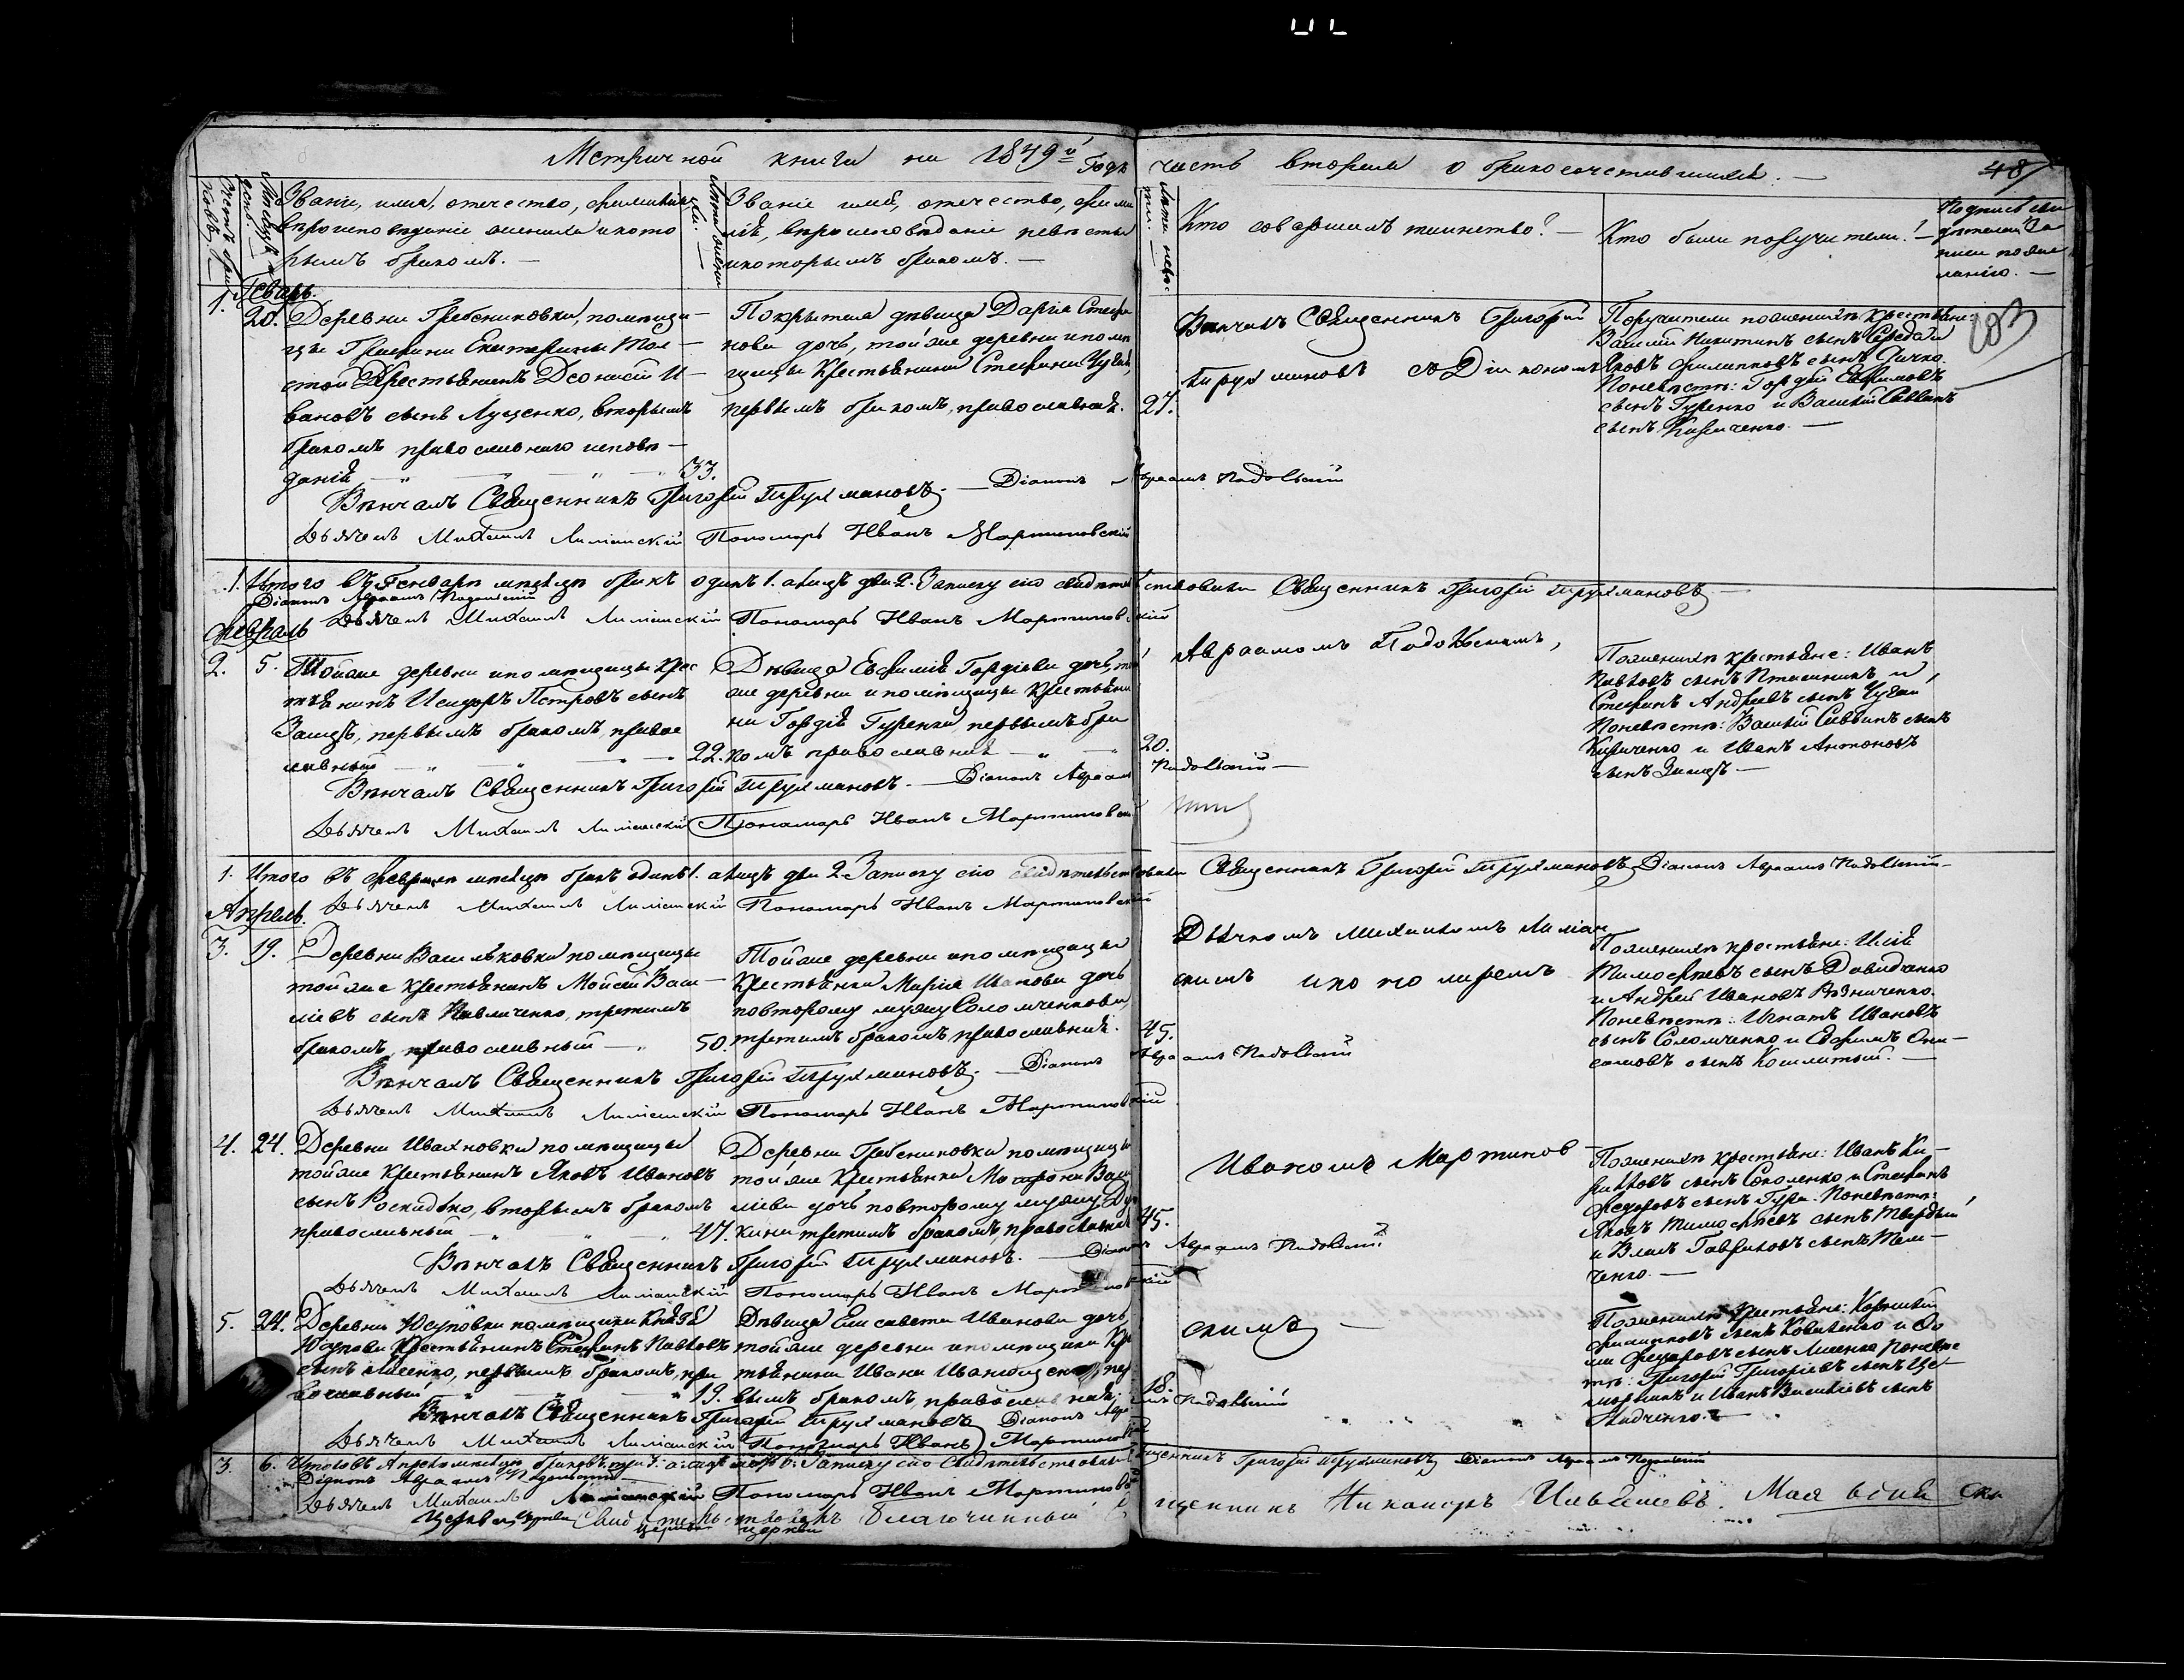 Метричной книги на 1849й Годъ часть вторая о бракосочетавшихся.
48
Званіе, имя, отечество, фамилія,
вѣроисповѣданіе жениха и кото
рымъ бракомъ. —
Званіе имя, отечество, фами
лія, вѣроисповѣданіе невѣсты
и которымъ бракомъ. —
Кто совершалъ таинство? —
Кто были поручители! —
Генварь.
1. 20. Деревни Гребениковки, помѣщи —
цы Графини Екатерины Тол —
стой Крестьянинъ Деонисій И —
вановъ сынъ Луценко, вторымъ
бракомъ православнаго исповѣ —
данія 33.
Покрытая дѣвица Дарія Стефа
нова дочь, той же деревни и помѣ
щицы Крестьянина Стефана Чугая,
первымъ бракомъ, православная.
27.
Вѣнчалъ Священникъ Григорій
съ Діакономъ
Поручители по женихѣ крестьяне:
Василій Никитинъ сынъ Середа и
Яковъ Филиповъ сынъ Дичко.
По невѣстѣ: Гордій Евфимовъ
сынъ Гуренко и Василій Саввинъ
сынъ Кириченко. —
183
Вѣнчалъ Священникъ Григорій — Діаконъ Авраамъ Подольскій
Дьячекъ Михаилъ Лиманскій Пономарь Иванъ Мартиновскій
1. Итого въ Генварѣ мѣсяцѣ бракъ одинъ 1. а лицъ два 2. Записку сію свидѣтельствовали Священникъ Григорій
Діаконъ Авраамъ Подольскій
Дьячекъ Михаилъ Лиманскій Пономарь Иванъ Мартиновскій
Февраль
2. 5. Той же деревни и помѣщицы Крес
тьянинъ Исидоръ Петровъ сынъ
Заицъ, первымъ бракомъ, право
славный 22.
Дѣвица Евфимія Гордіева дочь, той
же деревни и помѣщицы Крестьяни
на Гордія Гуренка, первымъ бра
комъ православная
20.
Авраамомъ Подольскимъ,
По женихѣ крестьяне: Иванъ
Павловъ сынъ Пташникъ и
Стефанъ Андреевъ сынъ Чугай
По невѣстѣ: Василій Саввинъ сынъ
Кириченко и Иванъ Антоновъ
сынъ Заицъ —
Вѣнчалъ Священникъ Григорій — Діаконъ Авраамъ Подольскій —
Дьячекъ Михаилъ Лиманскій Пономарь Иванъ Мартиновскій
1. Итого въ Февралѣ мѣсяцѣ бракъ одинъ 1. а лицъ два 2. Записку сію свидѣтельствовали Священникъ Григорій Діаконъ Авраамъ Подольскій —
Дьячекъ Михаилъ Лиманскій Пономарь Иванъ Мартиновскій
Апрель.
3. 19. Деревни Васильковки помѣщицы
той же Крестьянинъ Мойсей Васи —
ліевъ сынъ Павличенко, третимъ
бракомъ, православный — 50.
Той же деревни и помѣщицы
Крестьянка Марія Иванова дочь
по второму мужу Соломченкова,
третимъ бракомъ, православная.
45.
Дьячкомъ Михаиломъ Лиман
скимъ и пономаремъ
По женихѣ крестьяне: Илія
Тимофеевъ сынъ Давидченко
и Андрей Ивановъ Рѣзниченко.
По невѣстѣ: Игнатъ Ивановъ
сынъ Соломченко и Ефимъ Они —
симовъ сынъ —
Вѣнчалъ Священникъ Григорій — Діаконъ Авраамъ Подольскій
Дьячекъ Михаилъ Лиманскій Пономарь Иванъ Мартиновскій
4. 24. Деревни Ивахновки помѣщицы
той же Крестьянинъ Яковъ Ивановъ
сынъ Роскидько, вторымъ бракомъ
православный 47.
Деревни Гребениковки помѣщицы
той же Крестьянка Матрона Васи
ліева дочь по второму мужу
третимъ бракомъ, православная
45.
Иваномъ Мартинов —
По женихѣ крестьяне: Иванъ Ки —
риловъ сынъ Соколенко и Стефанъ
Федоровъ сынъ Гура. По невѣстѣ:
Яковъ Тимофеевъ сынъ Твердый
и Власъ Гавриловъ сынъ
ченко. —
Вѣнчалъ Священникъ Григорій — Діаконъ Авраамъ Подольскій
Дьячекъ Михаилъ Лиманскій Пономарь Иванъ Мартиновскій
5. 24. Деревни Юсуповки помѣщика Князя
Юсупова Крестьянинъ Стефанъ Павловъ
сынъ Лисенко, первымъ бракомъ, пра
вославный 19.
Дѣвица Елисавета Иванова дочь,
той же деревни и помѣщика Кре
стьянина Ивана пер
вымъ бракомъ, православная:
18.
скимъ —
По женихѣ Крестьяне: Корнилій
Филиповъ сынъ Коваленко и Фо
ма Федоровъ сынъ Лисенко По невѣс
тѣ: Григорій Григоріевъ сынъ
и Иванъ Василіевъ сынъ
Вѣнчалъ Священникъ Григорій Діаконъ Авраамъ Подольскій
Дьячекъ Михаилъ Лиманскій Пономарь Иванъ Мартиновскій
3. 6. Итого въ Апрелѣ мѣсяцѣ браковъ три 3. а лицъ шесть 6. Записку сію свидѣтельствовали Священникъ Григорій Діаконъ Авраамъ Подольскій
Діаконъ Авраамъ Подольскій —
Дьячекъ Михаилъ Лиманскій Пономарь Иванъ Мартиновскій
Благочинный Священникъ Никаноръ Мая